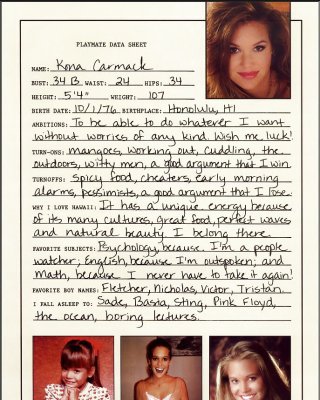 PLAYMATE DATA SHEET
NAME: Kona Carmack
BUST: 34 B WAIST: 24 HIPS: 34
HEIGHT: 5'4" WEIGHT: 107
BIRTH DATE: 10/1/76 BIRTHPLACE: Honolulu, HI
AMBITIONS: To be able to do whatever I want
without worries of any kind. Wish me luck!
TURN-ONS: mangoes, working out, cuddling, the
outdoors, witty men, a good argument that I win.
TURNOFFS: spicy food, cheaters, early morning
alarms, pessimists, a good argument that I lose.
WHY I LOVE HAWAII: It has a unique energy because
of its many cultures, great food, perfect waves
and natural beauty. I belong there.
FAVORITE SUBJECTS: Psychology, because I'm a people
watcher; English, because I'm outspoken; and
math, because I never have to take it again!
FAVORITE BOY NAMES: Fletcher, Nicholas, Victor, Tristan.
I FALL ASLEEP TO: Sade, Basia, Sting, Pink Floyd,
the ocean, boring lectures.